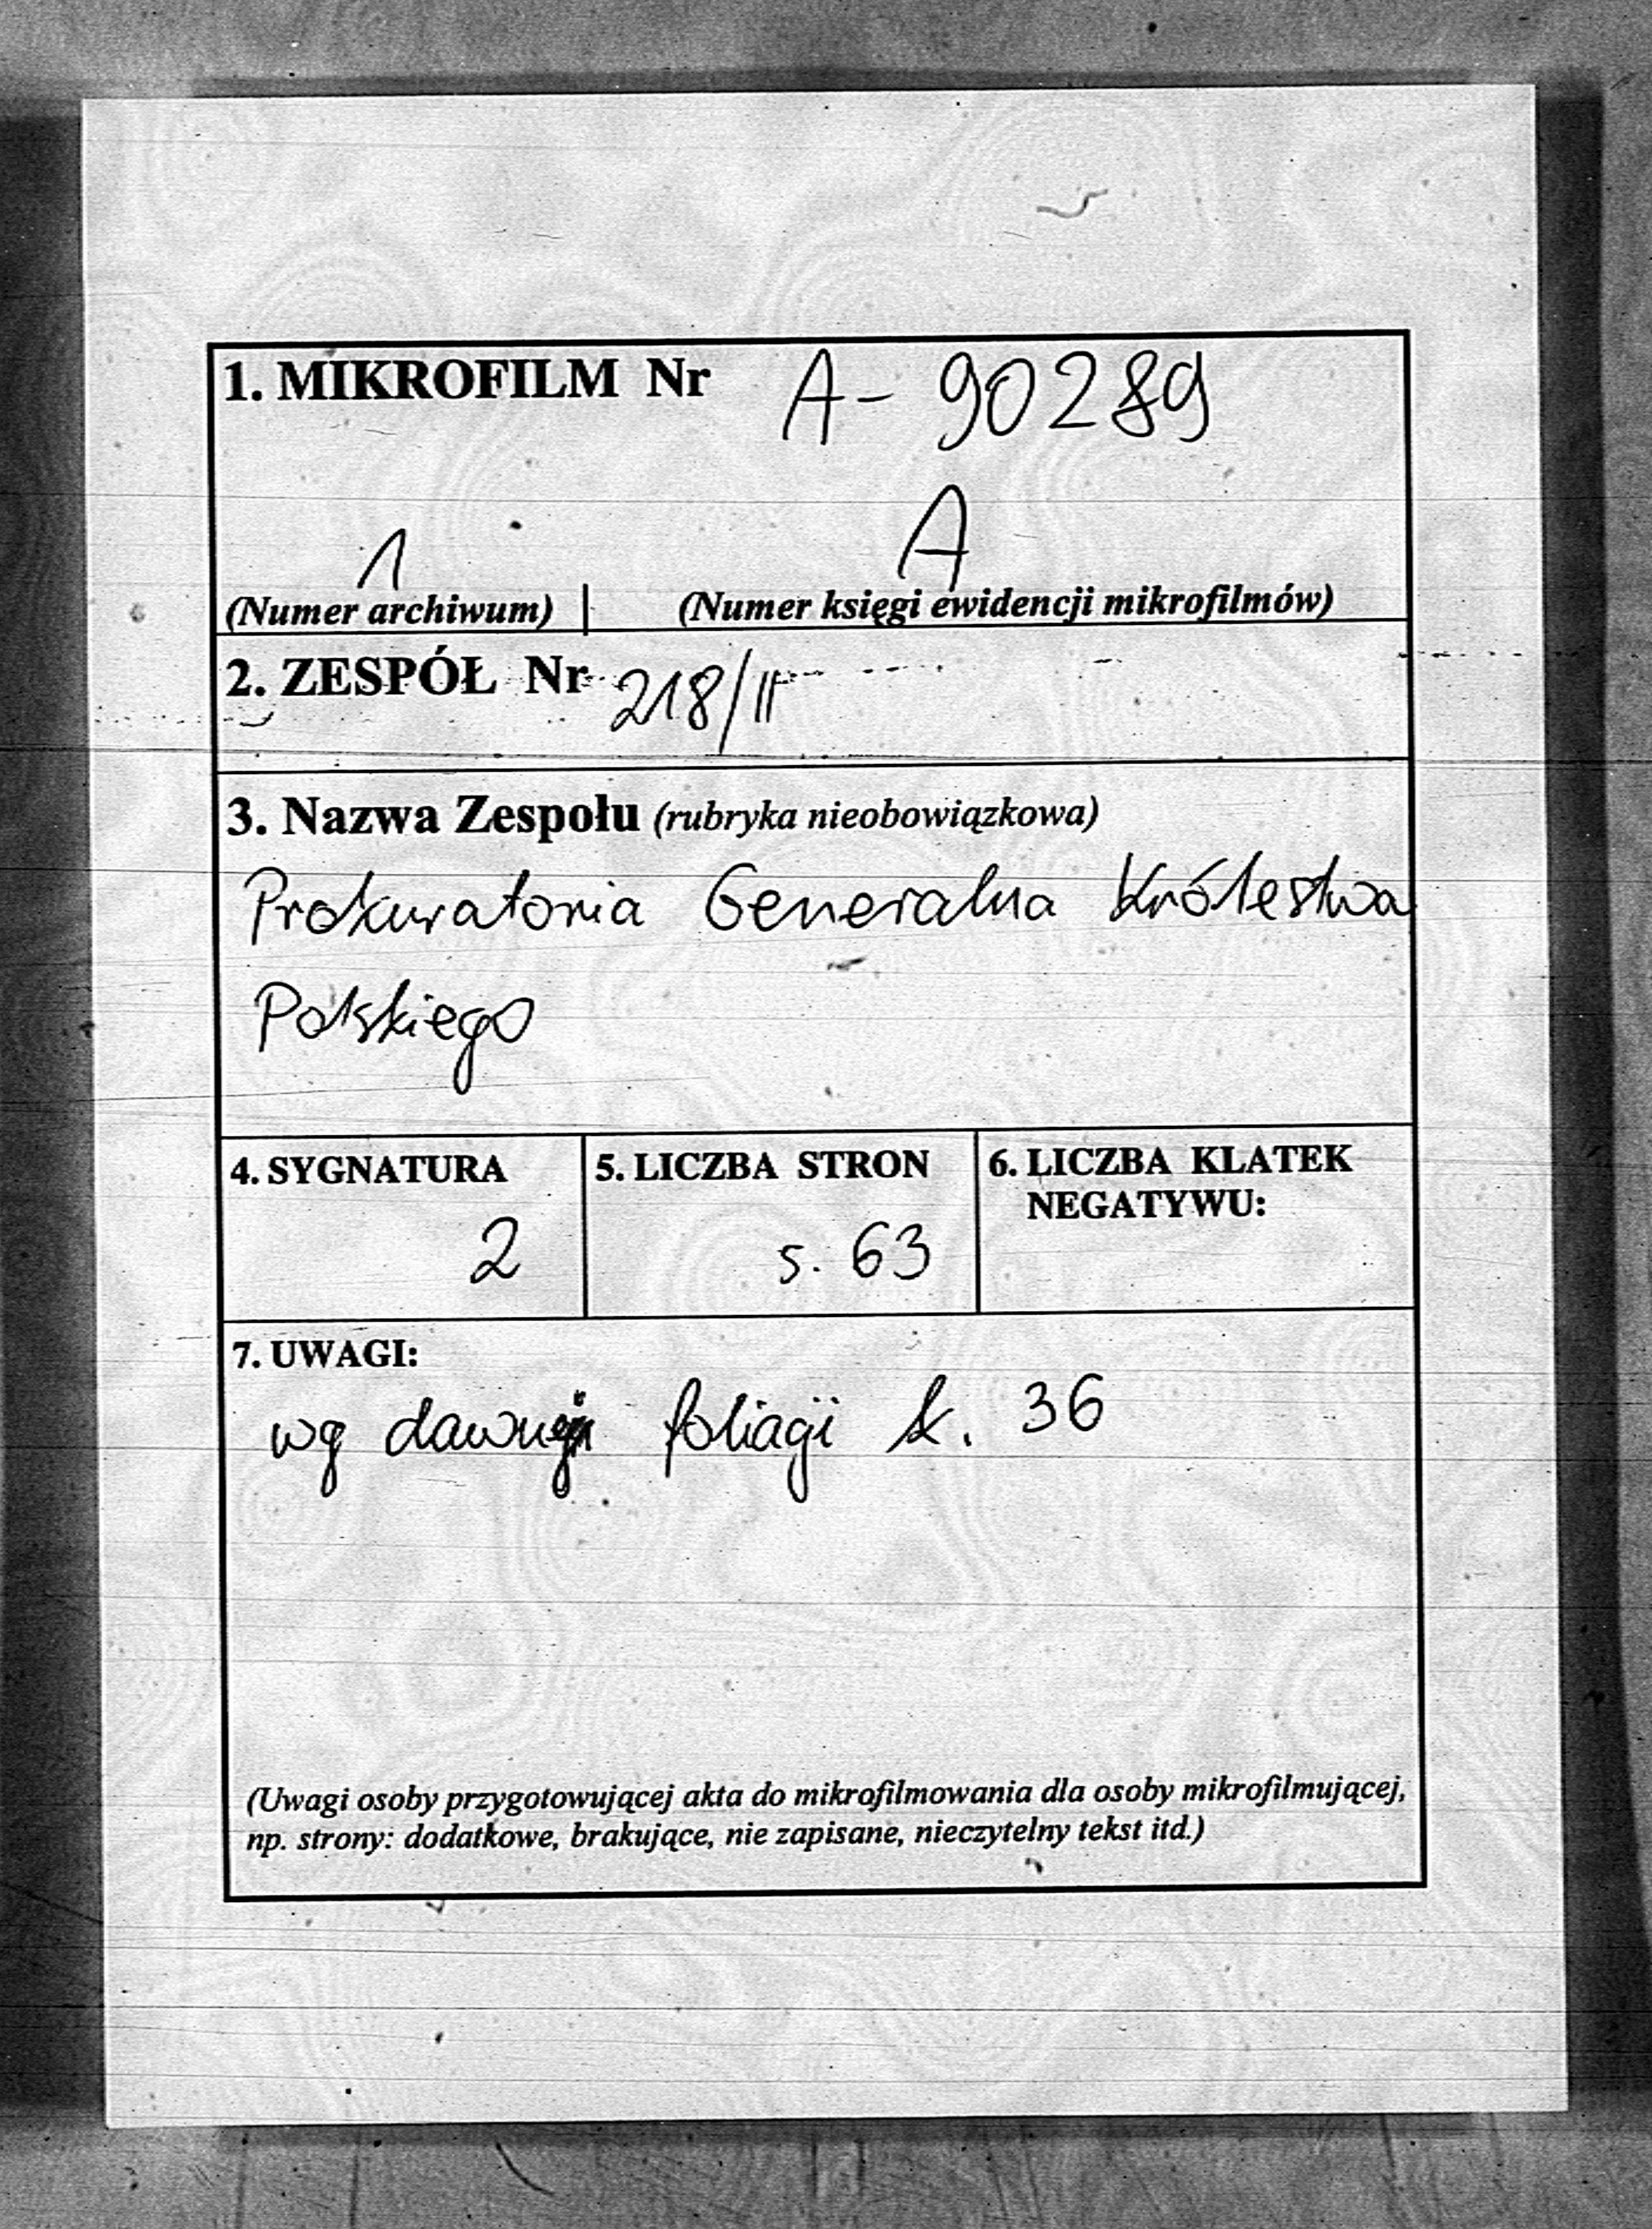 1. MIKROFILM Nr A-90289
1 A
(Numer archiwum) | (Numer księgi ewidencji mikrofilmów)
2. ZESPÓŁ Nr 218/II
3. Nazwa Zespołu (rubryka nieobowiązkowa)
Prokuratoria Generalna Królestwa
Polskiego
4. SYGNATURA 5. LICZBA STRON 6. LICZBA KLATEK
NEGATYWU:
2 s. 63
7. UWAGI:
wg dawnej foliagi k. 36
(Uwagi osoby przygotowującej akta do mikrofilmowania dla osoby mikrofilmującej,
np. strony: dodatkowe, brakujące, nie zapisane, nieczytelny tekst itd.)